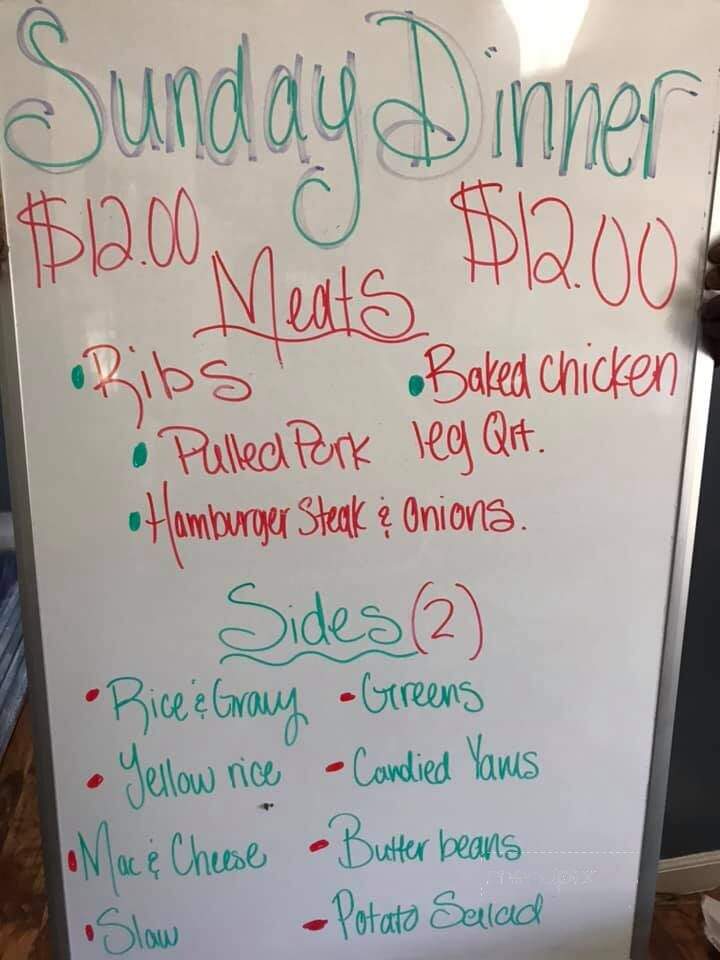 Sunday Dinner
$12.00 $12.00
Meats
Ribs
Baked chicken
leg Qrt.
Pulled Pork
Hamburger Steak & Onions.
Sides (2)
Rice & Gravy
Greens
Yellow rice
Candied Yams
Mac & Cheese
Butter beans
Slaw
Potato Salad